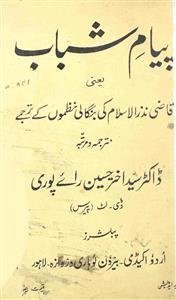 پیامِ شباب
یعنی
قاضی نذرالاسلام کی بنگالی نظموں کے ترجمے
مترجمہ و مرتبہ
ڈاکٹر سید اختر حسین رائے پوری
ڈی۔ لٹ (پیرس)
پبلشرز
اُردو اکیڈمی۔ بیرون لوہاری دروازہ۔ لاہور